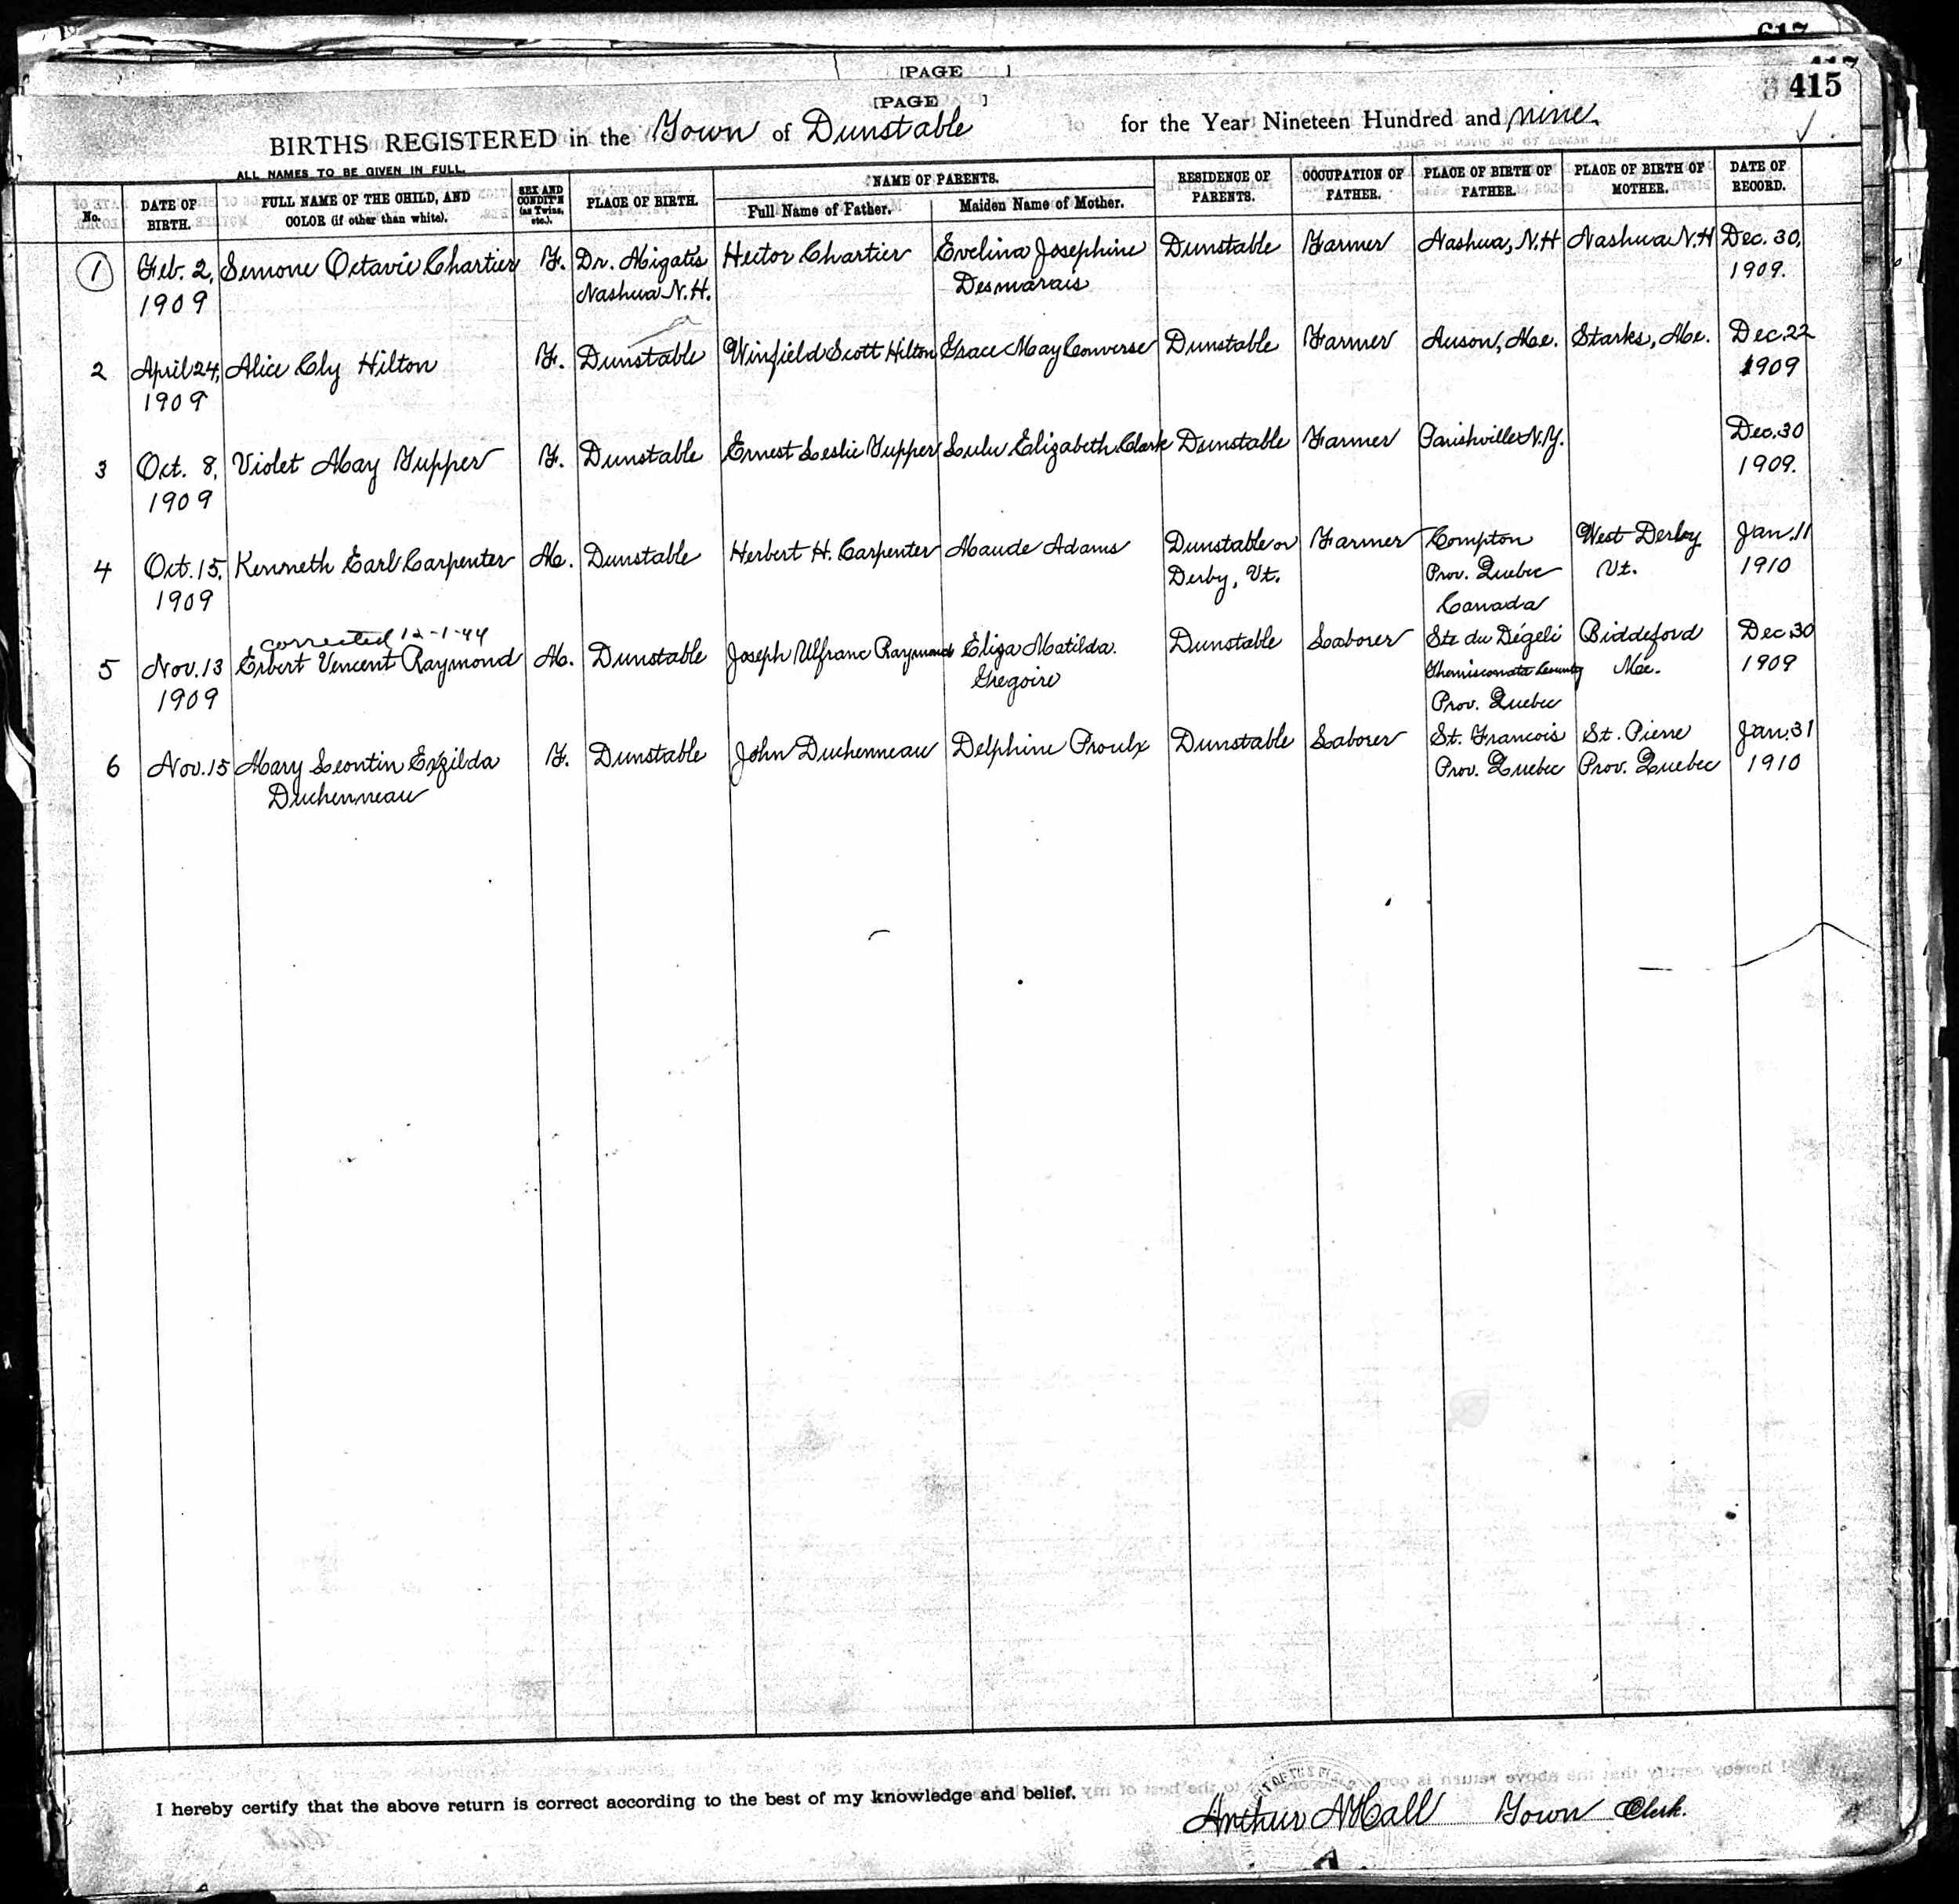 617
[PAGE ]
417
415
[PAGE ]
BIRTHS REGISTERED in the Town of Dunstable for the Year Nineteen Hundred and nine.
ALL NAMES TO BE GIVEN IN FULL.
No.
DATE OF BIRTH.
FULL NAME OF THE CHILD, AND COLOR (if other than white).
SEX AND CONDIT'N (as Twins, etc.).
PLACE OF BIRTH.
NAME OF PARENTS.
Full Name of Father.
Maiden Name of Mother.
RESIDENCE OF PARENTS.
OCCUPATION OF FATHER.
PLACE OF BIRTH OF FATHER.
PLACE OF BIRTH OF MOTHER.
DATE OF RECORD.
1 Feb. 2, Semone Octavie Chartier F. Dr. Hector Chartier Evelina Josephine Dunstable Farmer Nashua, N.H Nashua N.H Dec. 30,
1909 Nashua N.H. Desmarais 1909.
2 April 24, Alice Cly Hilton F. Dunstable Winfield Scott Hilton Grace May Converse Dunstable Farmer Anson, Me. Starks, Me. Dec. 22
1909 1909
3 Oct. 8, Violet May Tupper F. Dunstable Ernest Leslie Tupper Lulu Elizabeth Clark Dunstable Farmer Parishville N.Y. Dec. 30
1909 1909.
4 Oct. 15, Kenneth Earl Carpenter M. Dunstable Herbert H. Carpenter Maude Adams Dunstable or Farmer Compton West Derby Jan. 11
1909 Derby, Vt. Prov. Quebec Vt. 1910
Canada
corrected 12-1-44
5 Nov. 13 Erbert Vencent Raymond M. Dunstable Joseph Ulfranc Raymond Eliza Matilda. Dunstable Laborer Ste du Dégeli Biddeford Dec 30
1909 Gregoire Themisconata County Me. 1909
Prov. Quebec
6 Nov. 15 Mary Leontin Exzilda F. Dunstable John Duchenneau Delphine Proulx Dunstable Laborer St. Francois St. Pierre Jan. 31
Duchenneau Prov. Quebec Prov. Quebec 1910
I hereby certify that the above return is correct according to the best of my knowledge and belief.
Arthur N Hall Town Clerk.